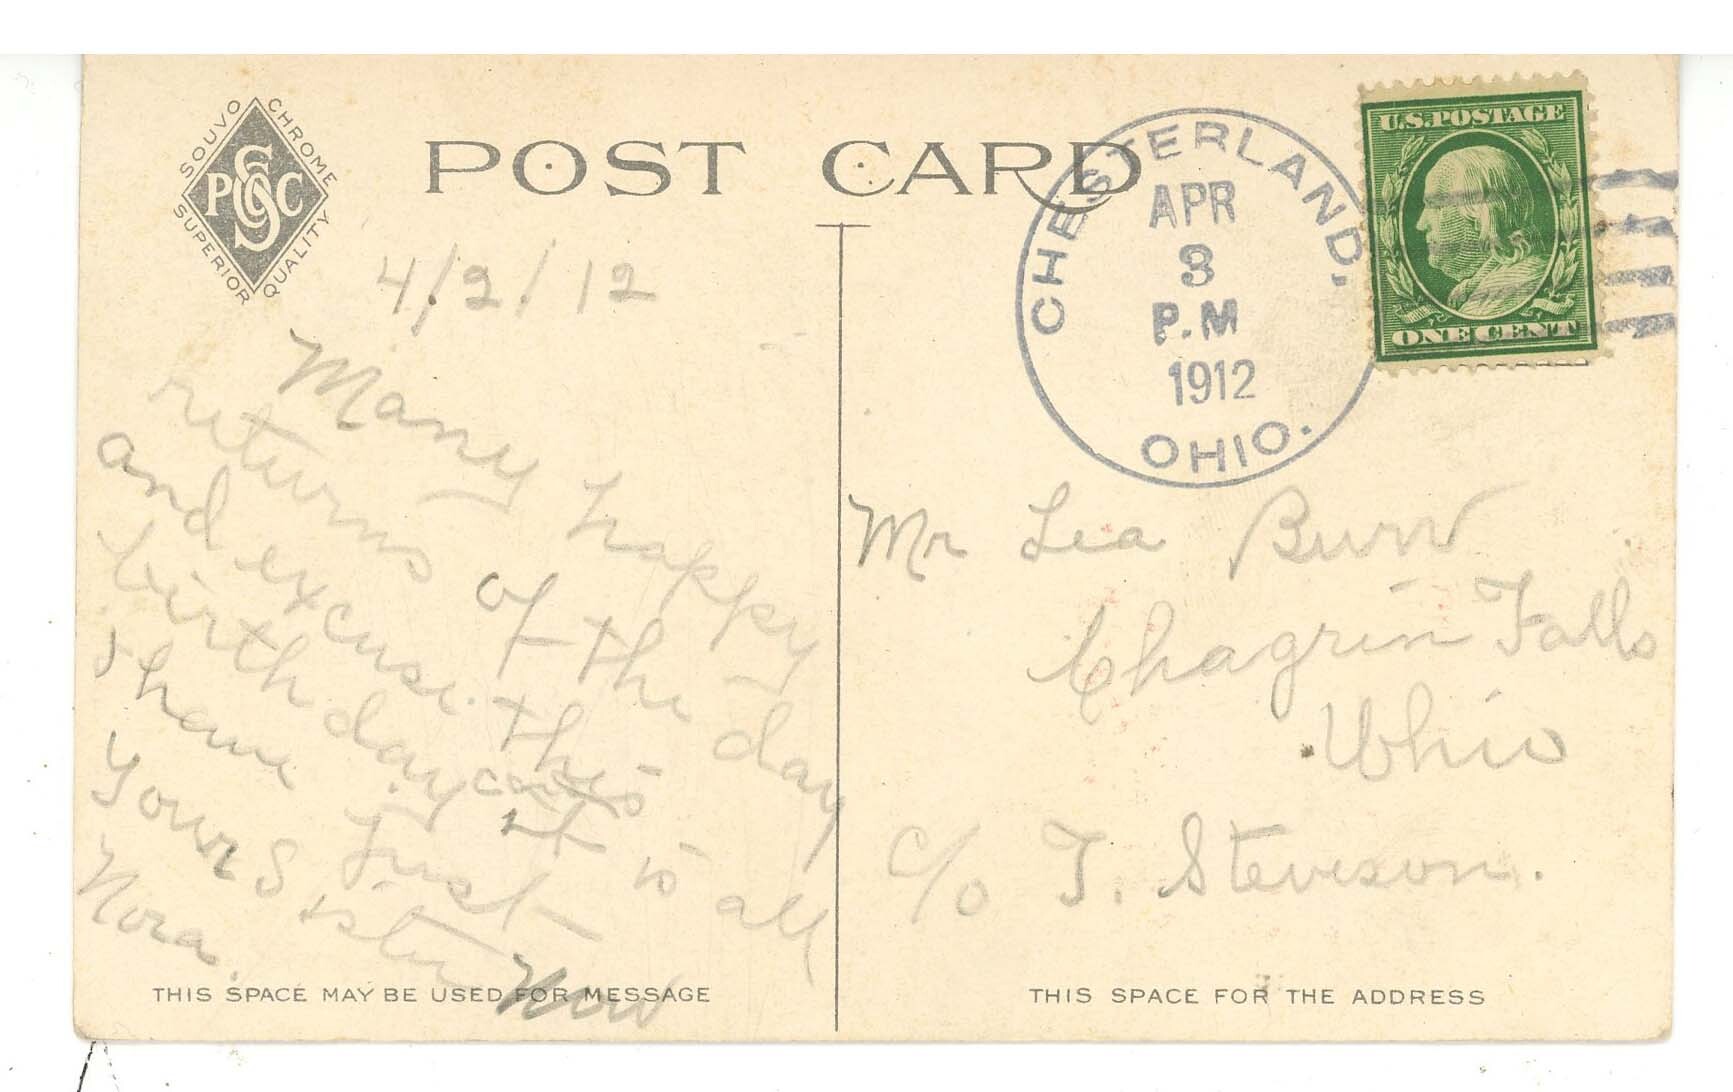 SOUVO CHROME
PGSC
SUPERIOR QUALITY
POST CARD
4/2/12
Many happy
returns of the day
and excuse this
birthday card it is all
I have just
Now
Your Sister
Nora.
THIS SPACE MAY BE USED FOR MESSAGE
CHESTERLAND,
APR
3
P.M
1912
OHIO.
U.S. POSTAGE
ONE CENT
Mr Lea Burr
Chagrin Falls
Ohio
c/o T. Steveson.
THIS SPACE FOR THE ADDRESS